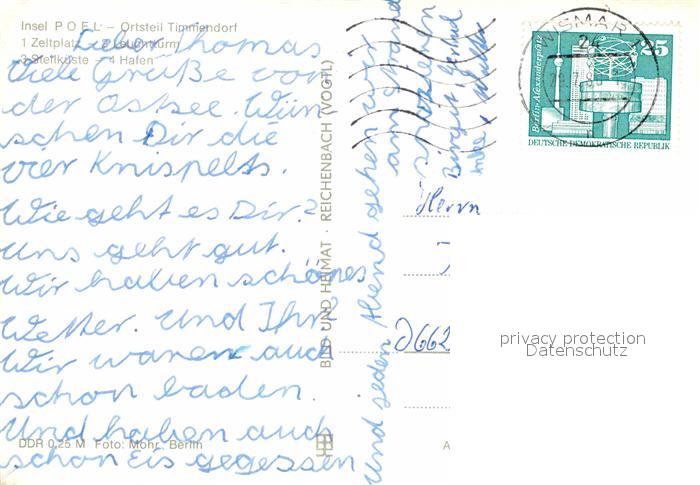 Insel POEL - Ortsteil Timmendorf
1 Zeltplatz 2 Leuchtturm
3 Steilküste 4 Hafen
Lieber Thomas
Viele Grüße von
der Ostsee. Wün
schen Dir die
vier Knispelts.
Wie geht es Dir?
Uns geht gut.
Wir haben schönes
Wetter. Und Ihr?
Wir waren auch
schon baden.
Und haben auch
schon Eis gegessen
Und jeden Abend gehen wir
am Strand
spazieren
Birgit, Gerhard
DDR 0,25 M Foto: Mohr, Berlin
BILD UND HEIMAT · REICHENBACH (VOGTL)
A
WISMAR
24
25
Berlin-Alexanderplatz
DEUTSCHE DEMOKRATISCHE REPUBLIK
Herrn
D662
privacy protection
Datenschutz